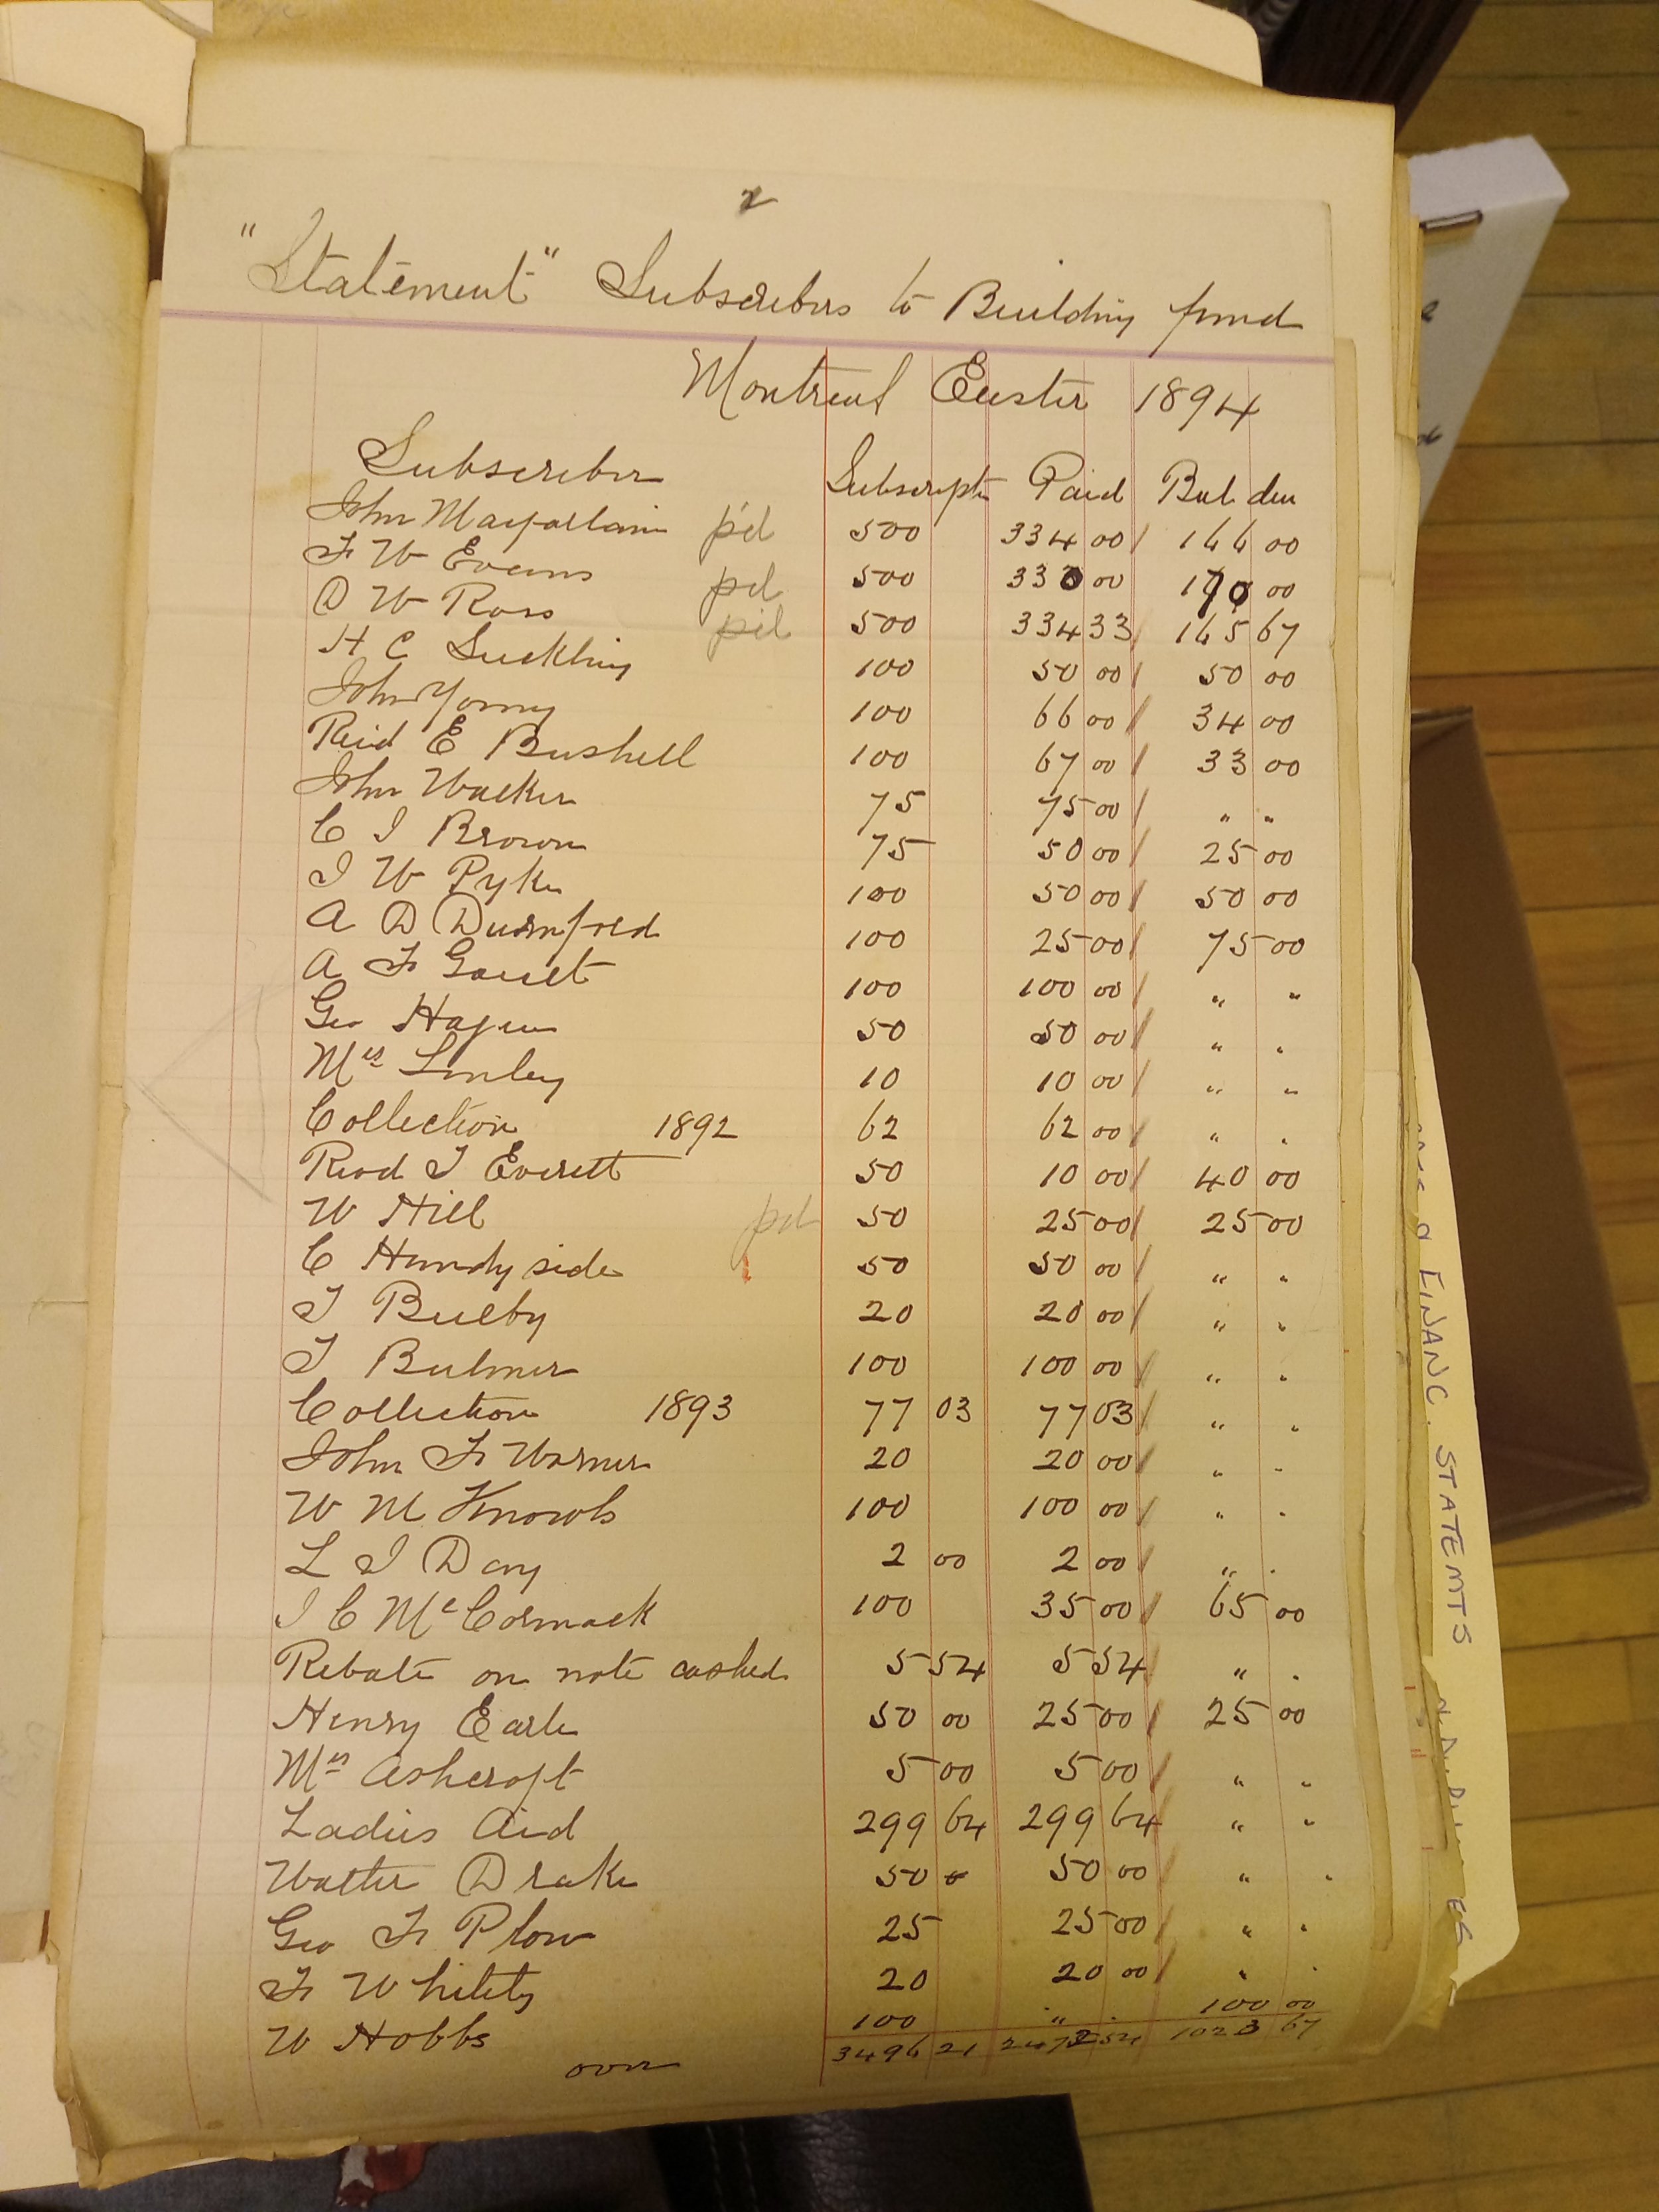 2
"Statement" Subscribers to Building fund
Montreal Easter 1894
Subscriber Subscriptn Paid Bal due
John Macfarlane pd 500 334 00 166 00
F W Evans pd 500 330 00 170 00
D W Ross pd 500 334 33 165 67
H C Suckling 100 50 00 50 00
John Young 100 66 00 34 00
Reid E Bushell 100 67 00 33 00
John Walker 75 75 00 " "
C J Brown 75 50 00 25 00
J W Pyke 100 50 00 50 00
A D Durnford 100 25 00 75 00
A F Gault 100 100 00 " "
Geo Hague 50 50 00 " "
Mrs Linley 10 10 00 " "
Collection 1892 62 62 00 " "
Revd J Everett 50 10 00 40 00
W Hill pd 50 25 00 25 00
C Handyside 50 50 00 " "
T Bulby 20 20 00 " "
T Bulmer 100 100 00 " "
Collection 1893 77 03 77 03 " "
John F Warner 20 20 00 " "
W M Knowls 100 100 00 " "
L J Day 2 00 2 00 " "
J C McCormack 100 35 00 65 00
Rebate on note cashed 5 54 5 54 " "
Henry Earle 50 00 25 00 25 00
Mrs Ashcroft 5 00 5 00 " "
Ladies Aid 299 64 299 64 " "
Walter Drake 50 50 00 " "
Geo F Plow 25 25 00 " "
F Whitley 20 20 00 " "
W Hobbs 100 " " 100 00
over 3496 21 2472 54 1023 67
FINANC. STATEMTS